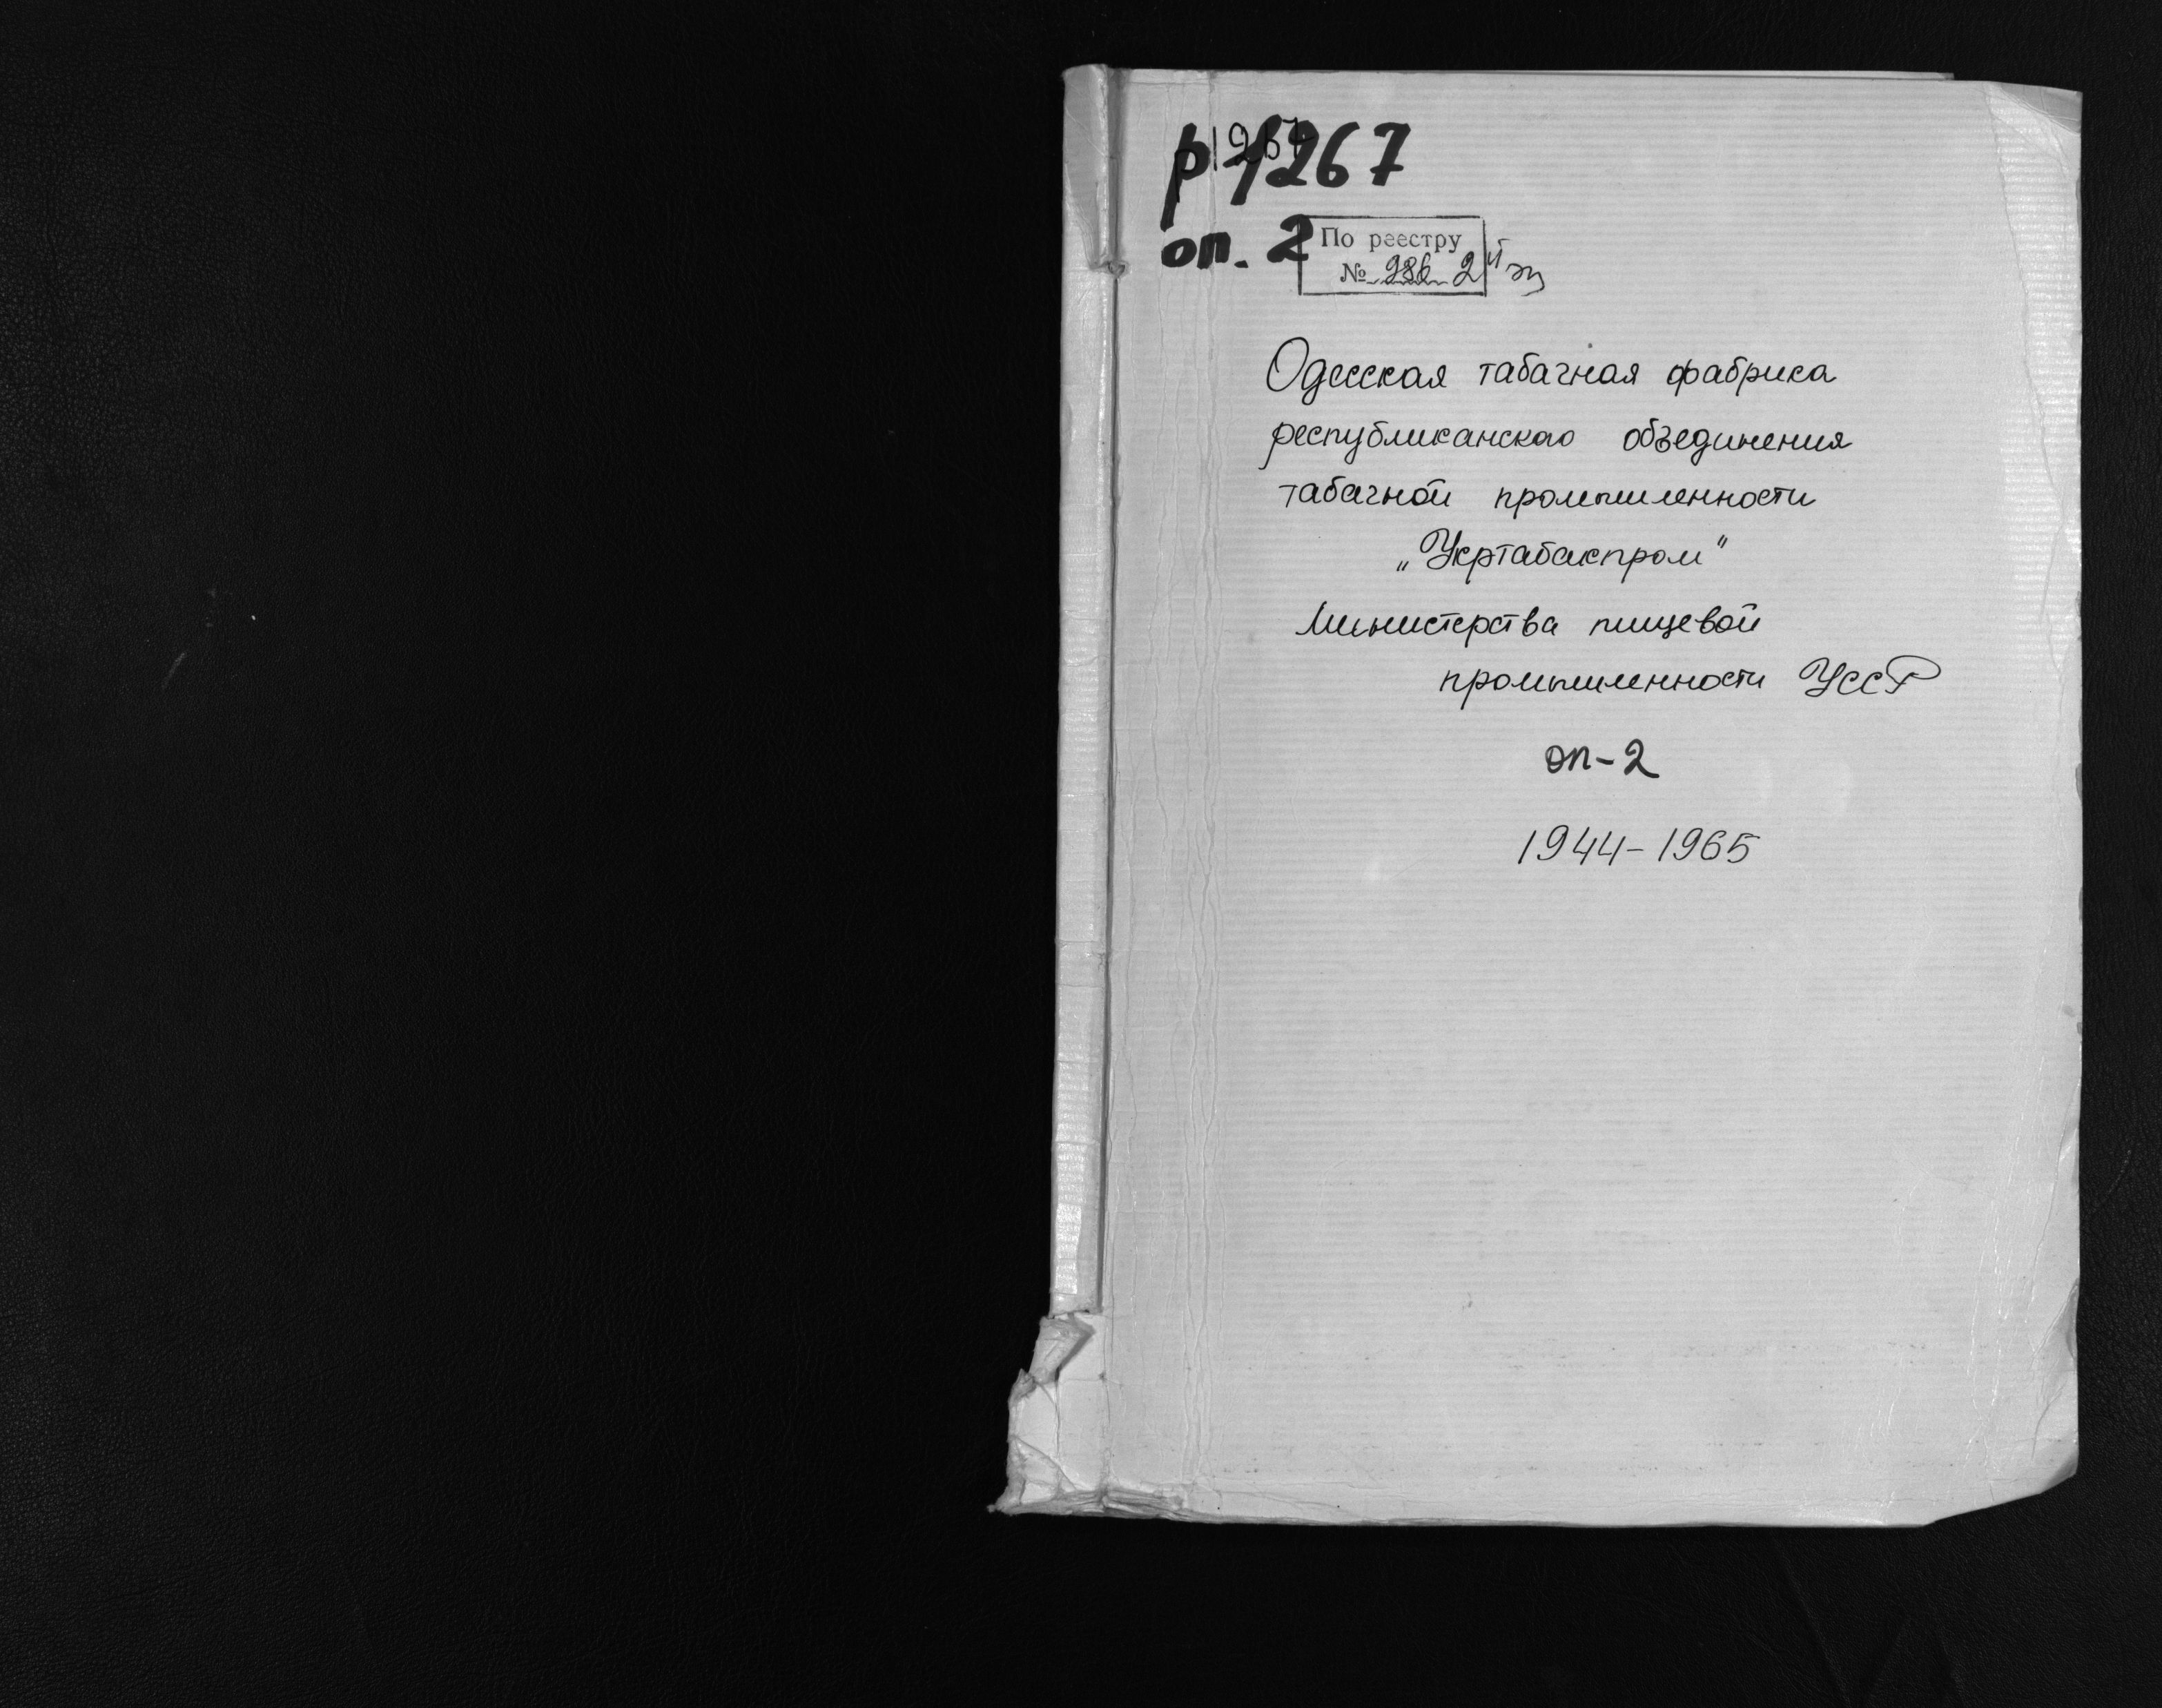 р 1267
1267
оп. 2
По реестру
№ 286 2й эз
Одесская табачная фабрика
республиканского объединения
табачной промышленности
„Укртабакпром“
Министерства пищевой
промышленности УССР
оп-2
1944-1965